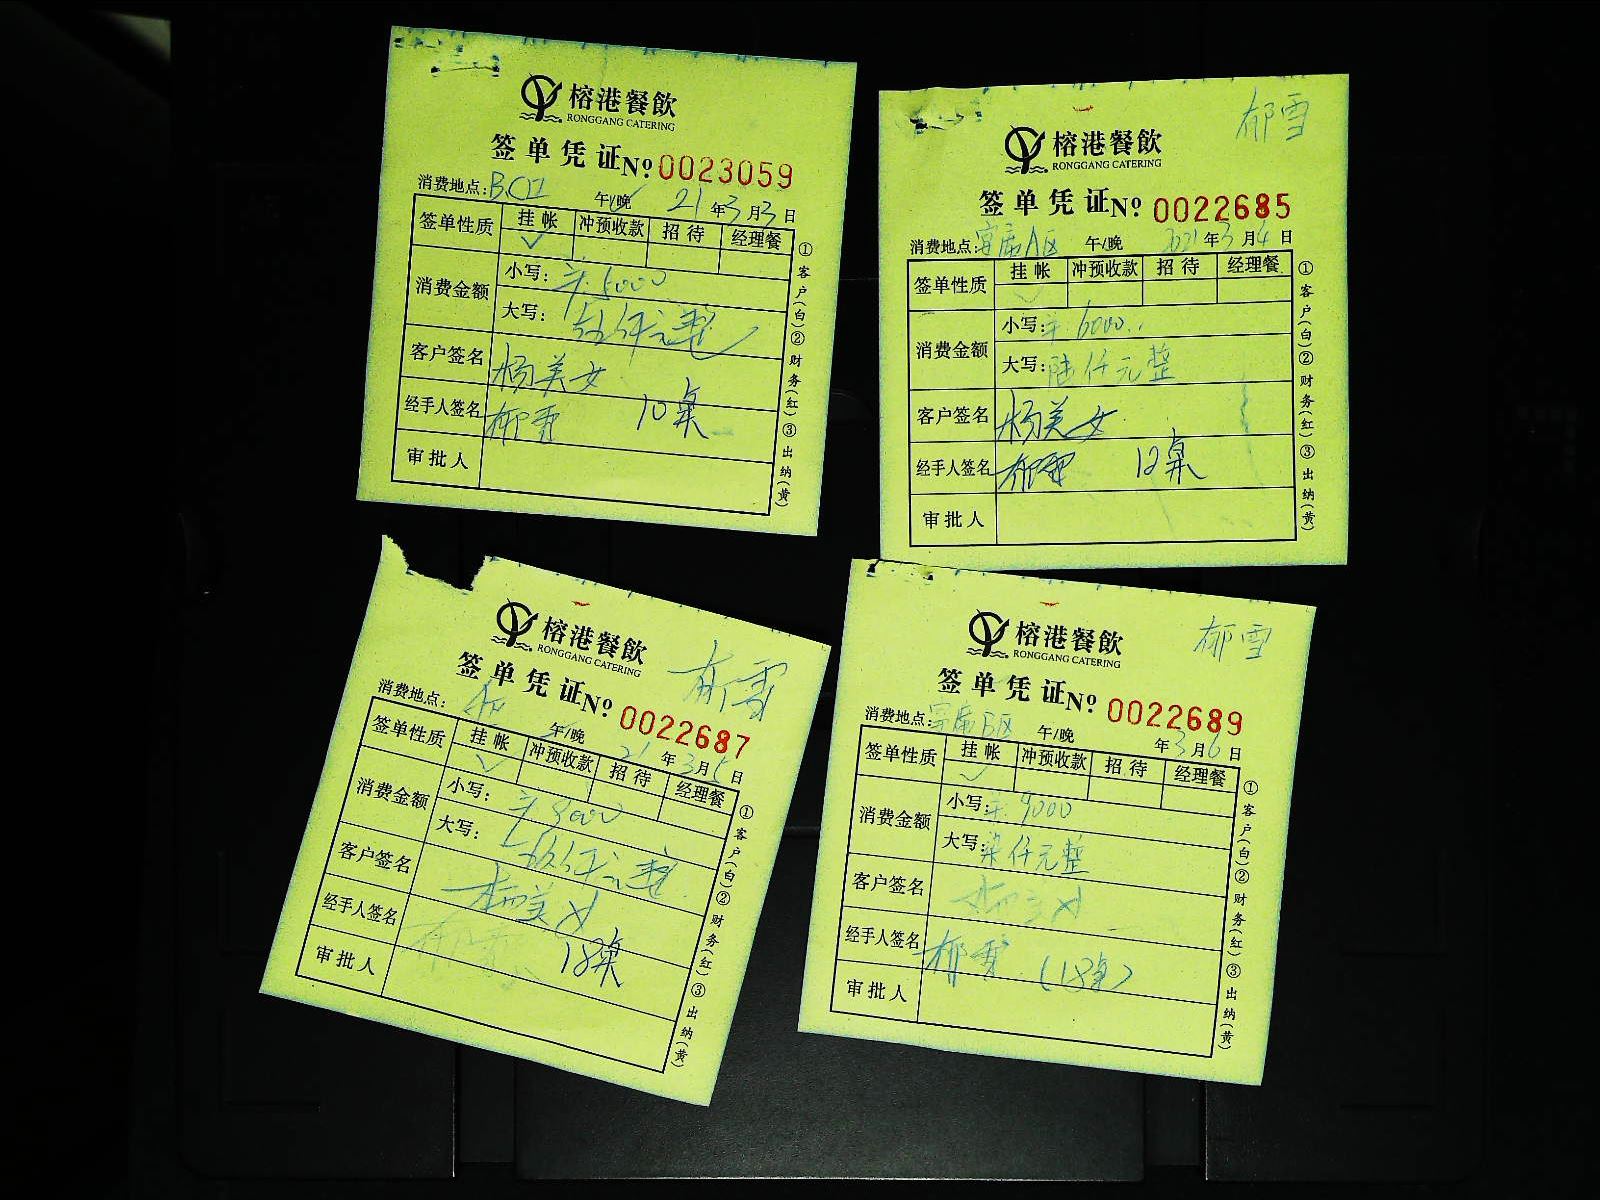 榕港餐飲
RONGGANG CATERING
签单凭证№ 0023059
消费地点: 午/晚 21年3月3日
签单性质 挂帐 冲预收款 招待 经理餐
消费金额 小写: 5000
大写: 伍仟元整
客户签名 杨美女
经手人签名 郁雪 10桌
审批人
①客户(白)②财务(红)③出纳(黄)
郁雪
榕港餐飲
RONGGANG CATERING
签单凭证№ 0022685
消费地点:宴席A区 午/晚 2021年3月4日
签单性质 挂帐 冲预收款 招待 经理餐
消费金额 小写: 6000
大写:陆仟元整
客户签名 杨美女
经手人签名 郁雪 12桌
审批人
①客户(白)②财务(红)③出纳(黄)
榕港餐飲
RONGGANG CATERING
郁雪
签单凭证№ 0022687
消费地点: 午/晚 21年3月5日
签单性质 挂帐 冲预收款 招待 经理餐
消费金额 小写: 000
大写: 仟元整
客户签名 杨美女
经手人签名 郁雪 18桌
审批人
①客户(白)②财务(红)③出纳(黄)
榕港餐飲
RONGGANG CATERING
郁雪
签单凭证№ 0022689
消费地点:宴席B区 午/晚 年3月6日
签单性质 挂帐 冲预收款 招待 经理餐
消费金额 小写: 9000
大写:柒仟元整
客户签名 杨美女
经手人签名 郁雪 (18桌)
审批人
①客户(白)②财务(红)③出纳(黄)